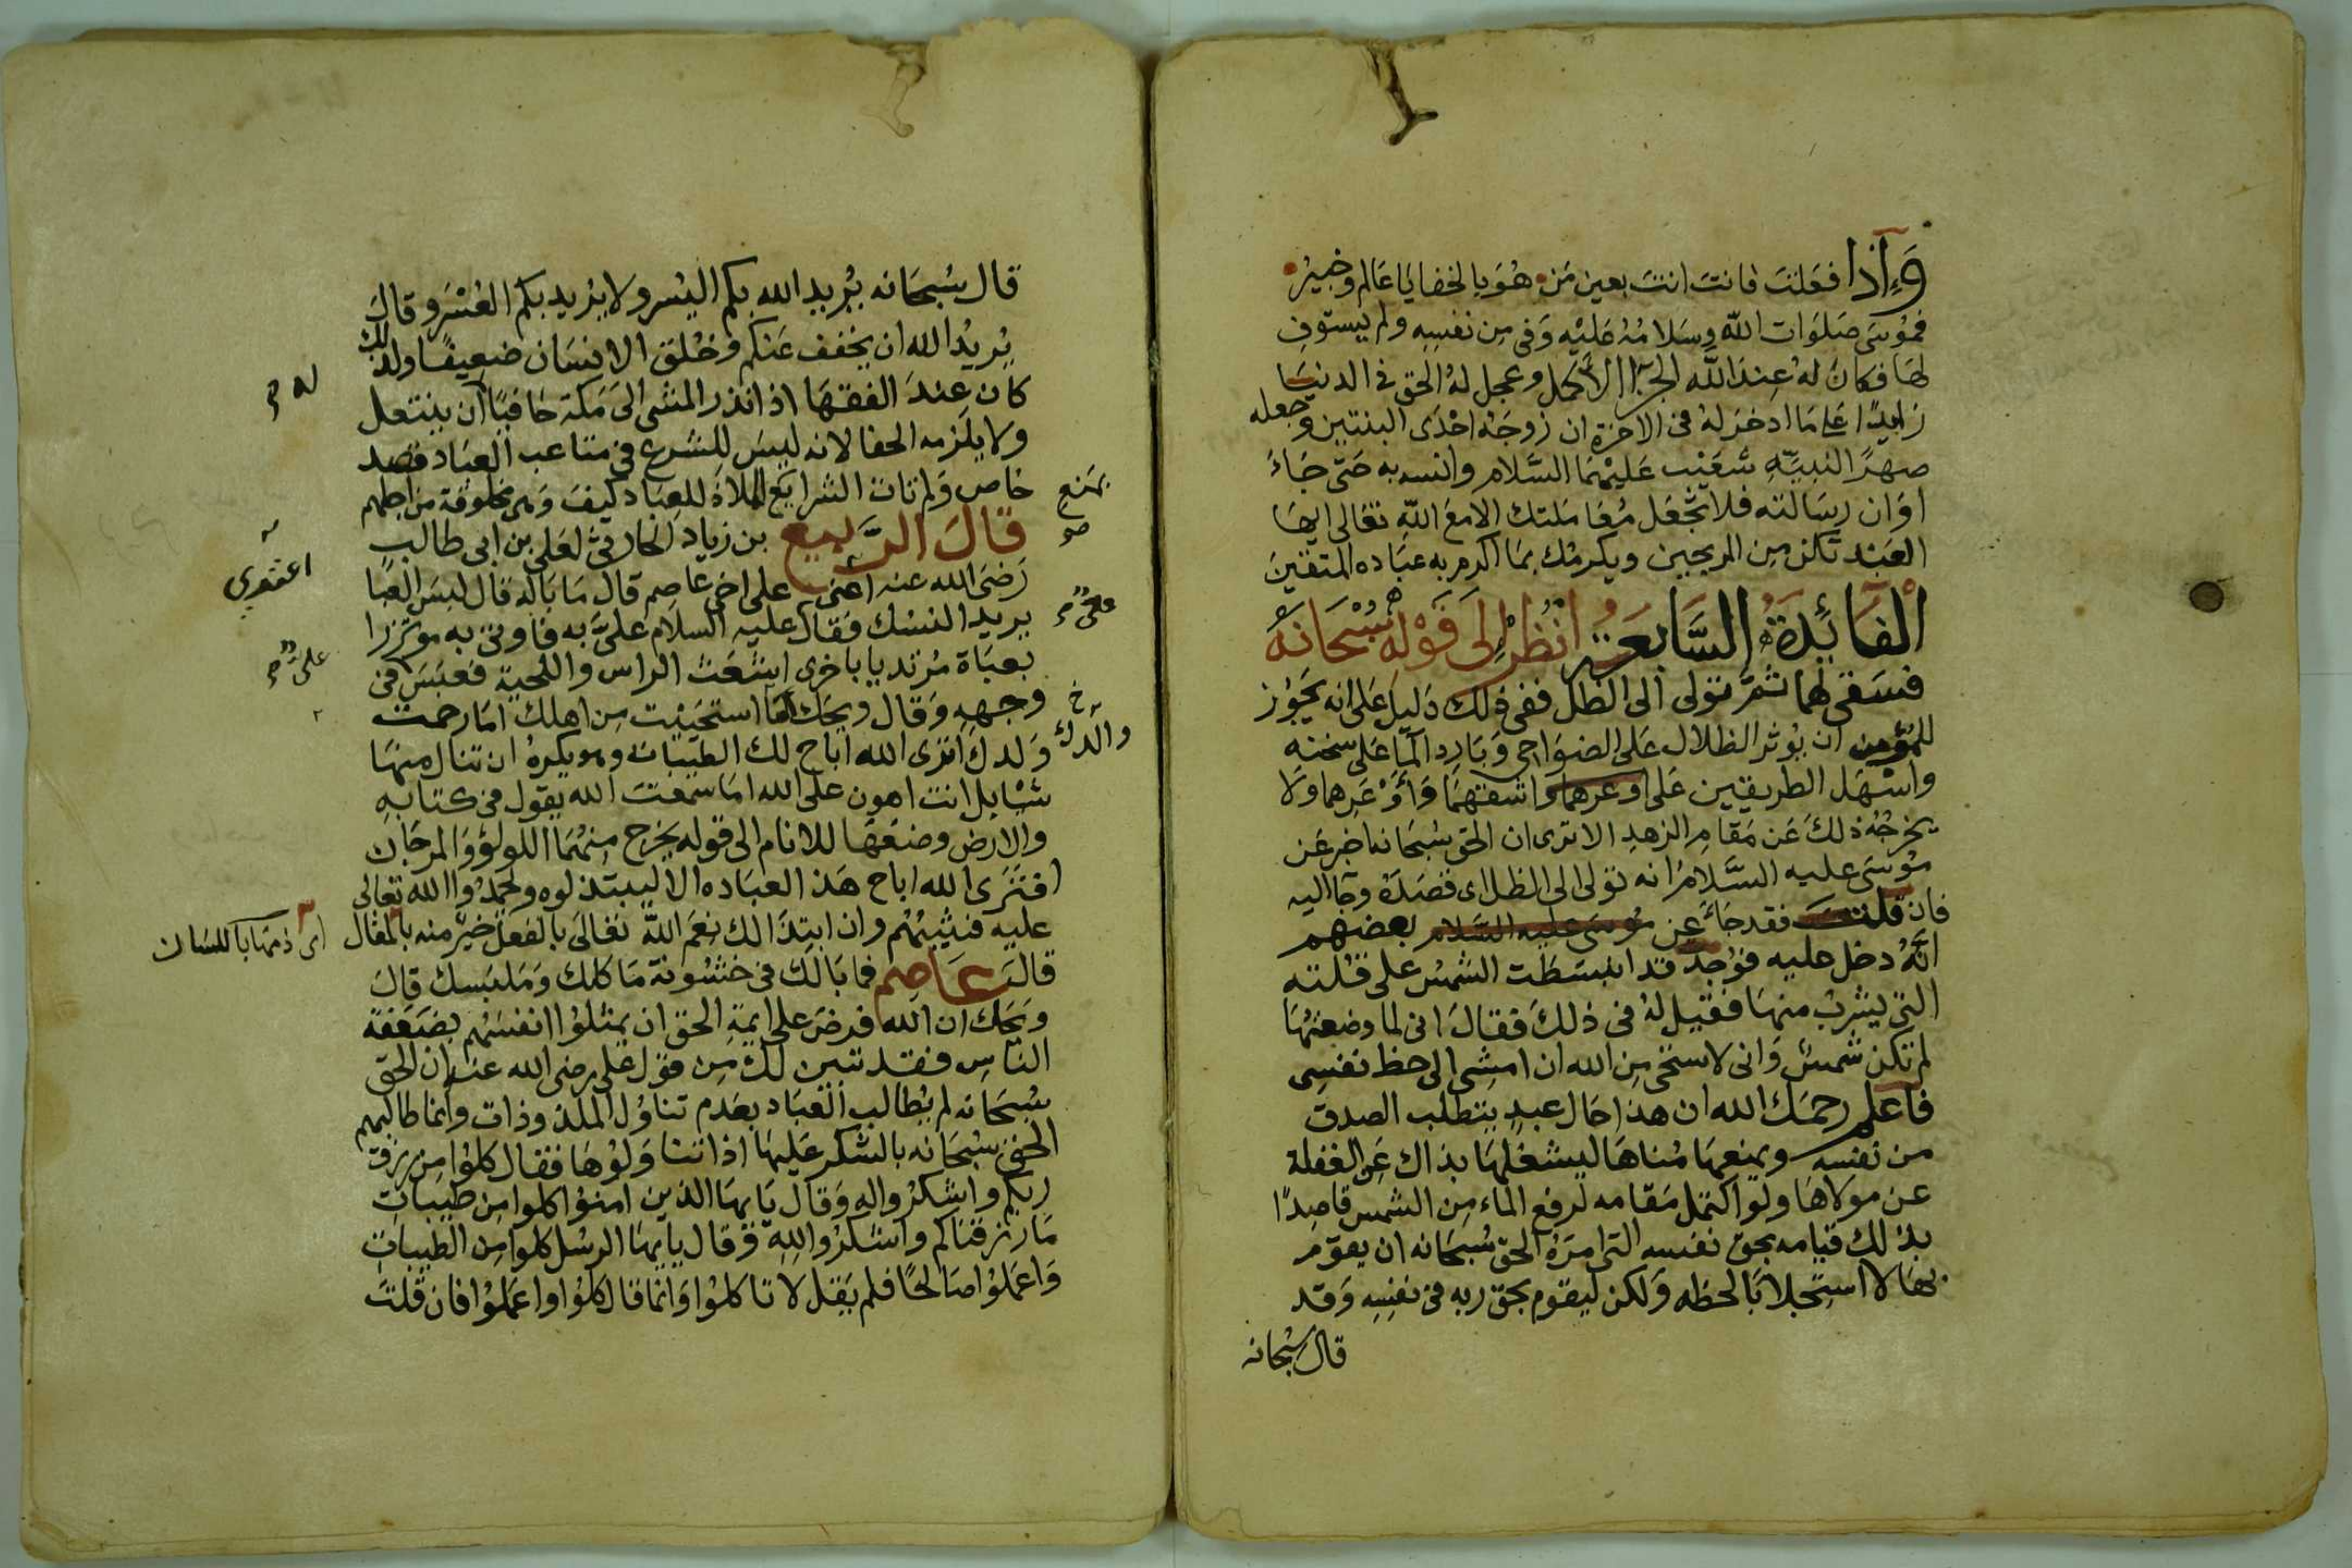 وَإِذا فعَلتَ فانتَ انتَ بعين مَن هُوَ بالخفايَا عَالم وخبيرُ
فموُسَى صَلوَات اللّه وسَلامُهُ عَليْه وَفى مِن نفسِه ولم يستوفِ
لهَا فكانَ لهُ عِندَ اللّه الجزا الأكمل وعجل لهُ الحق في الدنيَا
زايدًا عَلى مَا ادخرَ لهُ فى الاخرَة ان زوجَهُ احْدَى البنتين وجعله
صهرًا لنبيّهِ شعَيْب عَليْهمَا السَّلام وانسه به حَتّى جَاءَ
اوَان رسَالته فلا تجْعَل مُعَامَلتك الا مَع اللّه تعَالى ايهَا
العَبْد تكن مِن المربحين ويكرمْك بمَا اكرم به عبَاده المتقينَ
الْفَائِدَةُ السَّابِعَة انْظُرْ إلَى قَوْلِهِ سُبْحَانَهُ
فسَقى لهما ثمَّ تولى الى الظل ففى ذلك دَليل عَلى انه يَجوُز
للمؤمن ان يُوثر الظلال عَلى الضوَاحِى وَبَارد المآ عَلى سخنه
واسْهَل الطريقين عَلى اوعرهما واشقهمَا وَأوْعَرِهما وَلا
يخرجُهُ ذلكَ عَن مَقامِ الزهدِ الا ترى ان الحق سُبحَانه اخبر عَن
موُسَى عليه السَّلامُ انه تولى الى الظل اى قصَدَهُ وجآ اليه
فان قلتَ فقد جَاءَ عن موُسَى عليه السَّلام بعضهم
انَّهُ دخل عليه فوُجد قد انبسَطت الشمسُ على قُلته
التى يشربُ منهَا فقيل لهُ فى ذلكَ فقالَ انى لما وضعتُهَا
لم تكن شمسٌ وَانى لاستحى مِن الله ان امشِى الى حظ نفسِى
فاعْلم رحمَك الله ان هذا حَال عبدٍ يتطلب الصدق
من نفسه ويمنعهَا مُناهَا ليشغلهَا بذاك عَن الغفلة
عن مولاهَا ولو اكتمل مَقامه لرفع الماء مِن الشمس قاصِدًا
بذلك قيامه بحق نفسه التى امرَهُ الحق سُبحَانه ان يقوم
بهَا لا استجلابًا لحظه وَلكن ليقوم بحق ربه فى نفسِه وَقد
قال سُبحانه
قال سُبحَانه يُريد الله بكم اليُسر ولا يُريد بكم العُسْرَ وقالَ
يُريدُ الله ان يخفف عَنكم وخُلقَ الانسَان ضعِيفًا ولذلك
كان عِندَ الفقهَا اذا نذر المشى الىَ مَكة حَافيًا ان ينتعل
له م
ولا يلزمه الحفا لانه ليسَ للشرع فى متاعب العبَاد قصد
خاص وَلم تات الشرايع الملاذ للعِبَاد كيفَ وَهى مخلوقة من اجلهم
بمنع
صو
قَالَ الرَّبيع بن زياد الحَارثى لعَلى بن ابى طالب
رَضىَ الله عنه اعنى على اخى عَاصم قال مَا بَاله قال لبسَ العبَا
اعتورى
يريد النسُك فقال عليه السلام علىَّ به فاوتى به موتزرا
علىّ م
بعبَاة مُرتديا باخرى اشعَث الراس واللحية فعَبَسَ فى
علىّ م
وجههِ وَقال ويحَك اما استحيَيْت مِن اهلك امَا رحمت
خ
والدك
وَلدكَ اترى الله اباح لك الطيبَات وهو يكرهُ ان تنال منهَا
شيْا بل انت اهون على الله امَا سَمعتَ الله يقول فى كتابهِ
والارض وضعَهَا للانام الى قوله يخرج منهُمَا اللولؤ وَالمرجَان
افتَرَى الله اباح هَذ العبَاده الا ليبتذلوه ويحمدُوا الله تعَالى
عليه فيثيبُهُم وان ابتذالك نعَم اللّه تعَالىَ بالفعل خير منه بالمقال
اى ذمهَا باللسَان
قالَ عَاصِم فما بَالك فى خشُونة مَاكلك وَمَلبَسك قالَ
ويَحك ان الله فرضَ على ايمة الحق ان يمثلوُا انفسَهُم بضَعَفة
الناسِ فقد تبين لك مِن قوْل على رضى الله عنه ان الحق
سُبحَانه لم يُطالب العبَاد بعَدم تناوُل الملذوذات وانما طالبهم
الحق سُبحَانه بالشكر عَليهَا اذا تناوَلوُهَا فقال كلوُا مِن رزق
ربكم واشكرُوا له وَقال يَايهَا الذين امنوُا كلوا مِن طيبَاتِ
مَا رزقناكم واشكرُوا للهِ وَقال يايهَا الرسُل كلوا مِن الطيبَات
وَاعمَلوُا صَالحًا فلم يَقل لا تاكلوُا وَانما قال كلوُا واعمَلوُا فان قلتَ